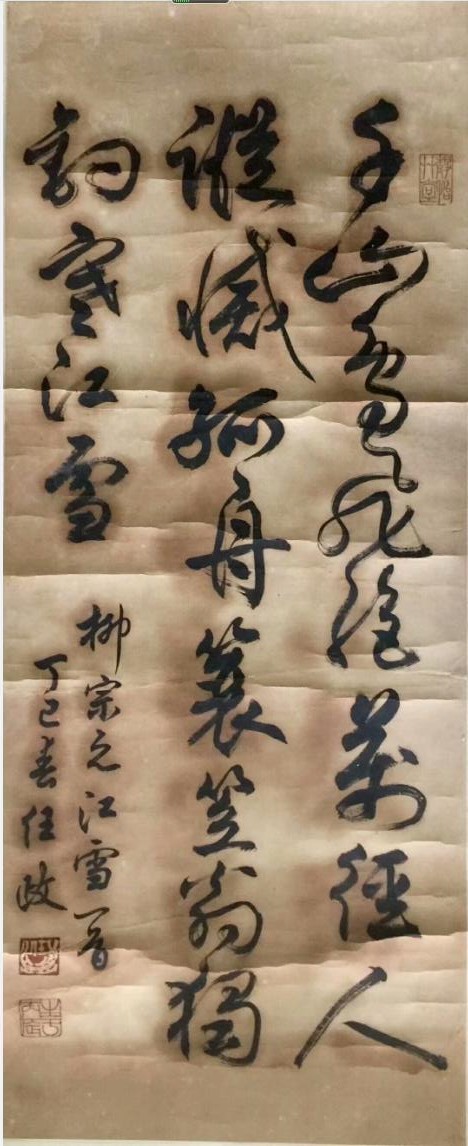 千山鳥飛絕萬徑人
蹤滅孤舟簑笠翁獨
釣寒江雪
柳宗元江雪一首
丁巳春任政